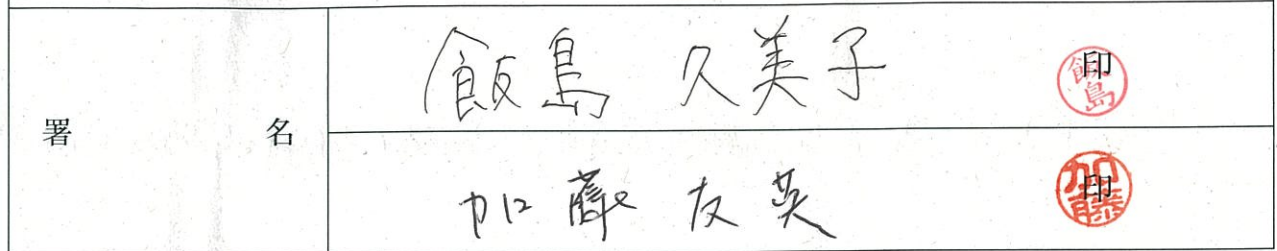 署名
飯島 久美子 印 飯島
加藤 友英 印 加藤